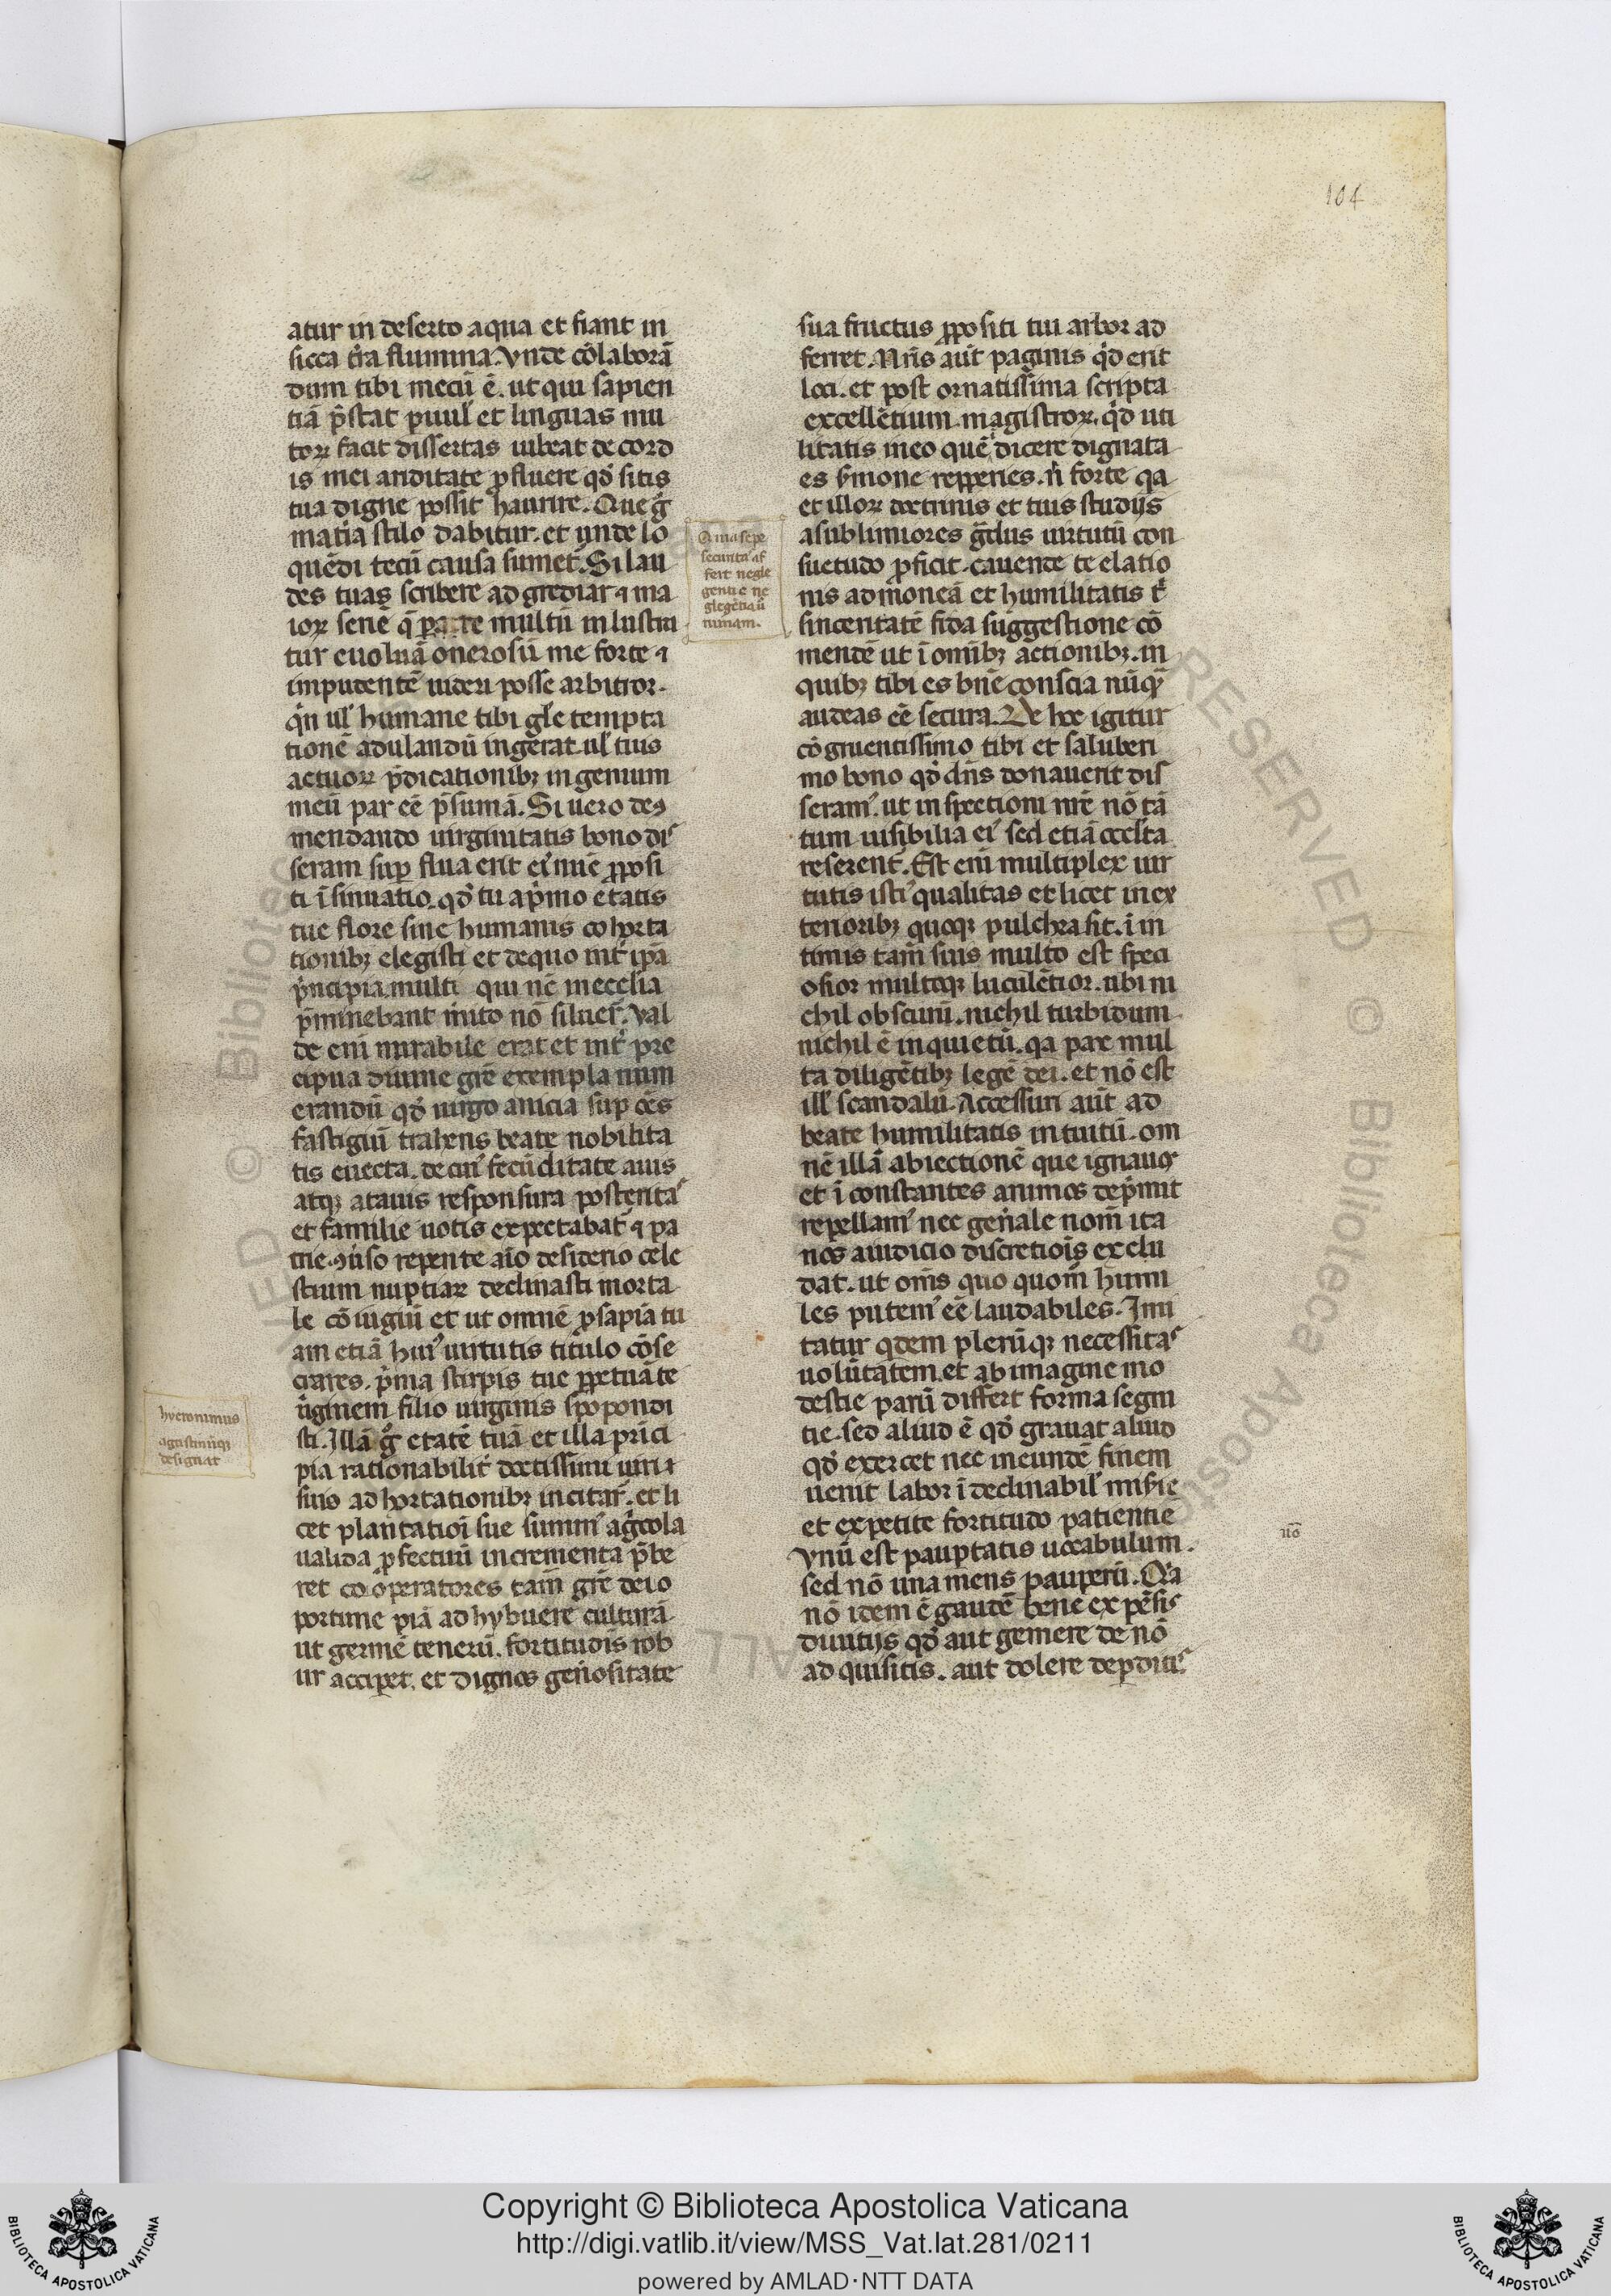 104
atur in deserto aqua et fiant in
sicca t̄ra flumina. Vnde cōlaborā
dum tibi mecū ē. ut qui sapien
tiā p̄stat puul' et linguas mu
torꝝ facit dissertas iubeat de cord
is mei ariditate ꝓfluere qđ sitis
tua digne possit haurire. Que g̊
mat̄ia stilo dabitur. et unde lo
quēdi tecū causa sumet᷑. Si lau
des tuas scribere adgrediar ⁊ ma
iorꝝ serie multū in lustra
tur euoluā onerosū me forte ⁊
impudentē uideri posse arbitror.
q̇n ul' humane tibi gl̄e tempta
tionē adulandū ingerat ul' tuis
actuorꝝ p̄dicationibꝫ ingenium
meū par eē p̄sumā. Si uero de ꝯ
mendando uirginitatis bono dis
seram suꝑ flua erit ei᷒ nūc ꝓposi
ti ī sinuatio. qđ tu a p̄mo etatis
tue flore sine humanis cohorta
tionibꝫ elegisti et de quo int̄ ip̄a
p̄ncipia multi qui nc̄ in ecclīa
p̄minebant m̄ito nō siluer̄. Val
de eni mirabile erat et int̄ pre
cipua diuine gr̄e exempla num
erandū qđ uirgo anicia suꝑ oēs
fastigiū trahens beate nobilita
tis euecta. de cui᷒ fecūditate auis
atqꝫ atauis responsura posterita᷒
et familie uotis expectabat᷑ ⁊ pa
trie. ꝯuiso repente aīo desiderio cele
stium nuptiarꝝ declinasti morta
le cōiugiū et ut omnē ꝓsapiā tu
am etiā hui᷒ uirtutis titulo cōse
crares. p̄ma stirpis tue ꝑpetuā te
u̇ginem filio uirginis spopondi
sti. Illā g̊ etatē tuā et illa prīci
pia rationabilit̄ doctissimi uiri ⁊
suis adhortationibꝫ incitar̄. et li
cet plantatioī sue summ᷒ ag̊cola
ualida ꝓfectuū incrementa p̄be
ret cooperatores tam̄ gr̄e dei o
portune piā adhybuere culturā
ut germē tenerū. fortitudīs rob
ur acciꝑet. et dignos gen̄ositate
Q ma sepe
securita᷒ af
fert negle
gentie nc̄
glegētiaū
nunam.
hyeronimus
agustinūqꝫ
designat
sua fructus ꝓpositi tui arbor ad
ferret. Nr̄is aūt paginis qđ erit
loci. et post ornatissīma scripta
excellētium magistrorꝝ. qđ uti
litatis meo quē dicere dignata
es s̄mone repperies. n̄ forte qa
et illorꝝ doctrinis et tuis studijs
a sublimiores g̊dus uirtutū con
suetudo ꝓficit. cauende te elatio
nis admoneā et humilitatis t'
sinceritatē fida suggestione cō
mendē ut ī omībꝫ actionibꝫ. in
quibꝫ tibi es bn̄e conscia nūqꝫ
audeas eē secura. De hoc igitur
cōgruentissimo tibi et saluberi
mo bono qđ dn̄s donauerit dis
seram᷒. ut inspectioni nr̄e nō tā
tum uisibilia ei᷒ sed etiā occl'ta
reserent᷑. Est eni multiplex uir
tutis isti᷒ qualitas et licet in ex
terioribꝫ quoqꝫ pulchra sit. ī in
timis tam̄ suis multo est speci
osior multoqꝫ luculētior. ubi ni
chil obscurū. nichil turbidum
nichil ē inquietū. qa pax mul
ta diligētibꝫ legē dei. et nō est
ill' scandalū. Accessuri aūt ad
beate humilitatis intuitū. om
nē illā abiectionē que ignauos
et ī constantes animos dep̄mit
repellam᷒ nec gen̄ale nom̄ ita
nos a iudicio discretioīs exclu
dat. ut om̄s quo quom̄ humi
les putem᷒ eē laudabiles. Imi
tatur qdem plerūqꝫ necessita᷒
uolūtatem. et ab imagine mo
destie parū differt forma segni
tie. sed aliud ē qđ grauat aliud
qđ exercet nec in eundē finem
uenit labor ī declinabil' mis̄ie
et expetite fortitudo patientie
Vnū est pauꝑtatis uocabulum.
sed nō una mens pauꝑerū. Qa
nō idem ē gaudē bene expēsis
diuitijs qđ aut gemere de nō
adquisitis. aut dolere deꝑditis
nō
RESERVED © Biblioteca Aposto
Copyright © Biblioteca Apostolica Vaticana
http://digi.vatlib.it/view/MSS_Vat.lat.281/0211
powered by AMLAD·NTT DATA
BIBLIOTECA APOSTOLICA VATICANA
BIBLIOTECA APOSTOLICA VATICANA